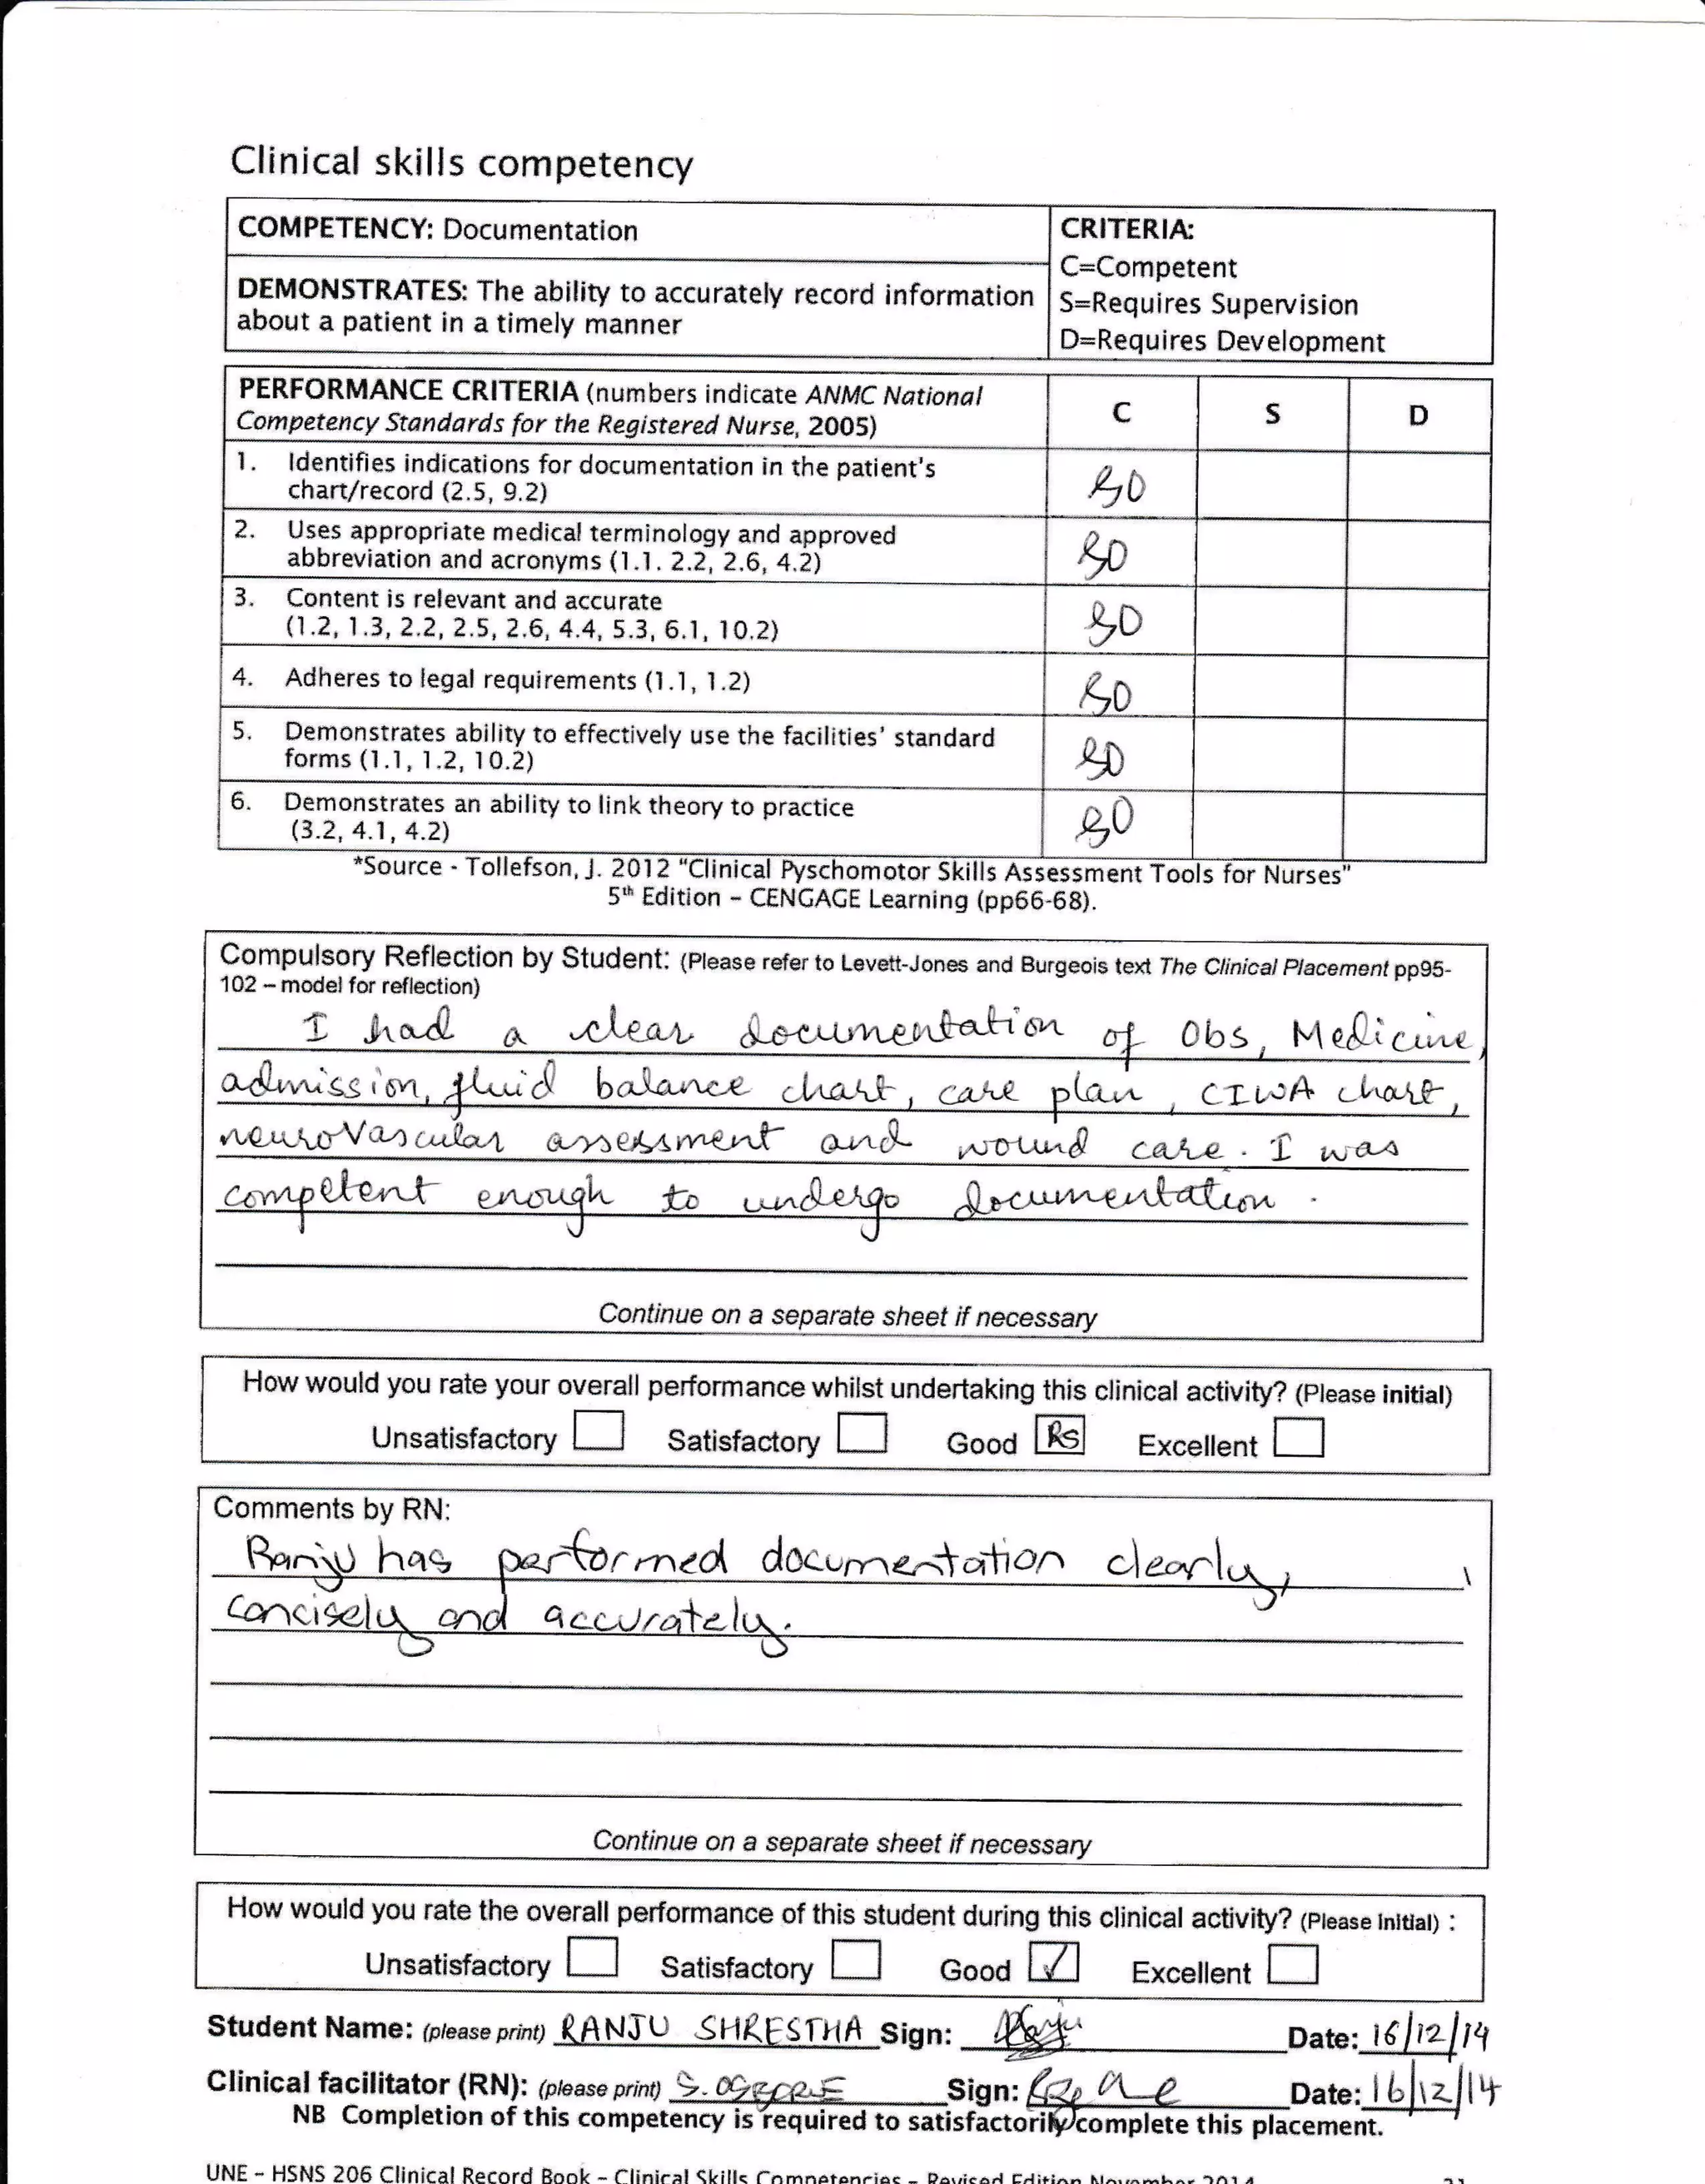 Clinical skills competency
COMPETENCY: Documentation
CRITERIA:
C=Competent
S=Requires Supervision
D=Requires Development
DEMONSTRATES: The ability to accurately record information
about a patient in a timely manner
PERFORMANCE CRITERIA (numbers indicate ANMC National
Competency Standards for the Registered Nurse, 2005)
C S D
1. Identifies indications for documentation in the patient's
chart/record (2.5, 9.2)
2. Uses appropriate medical terminology and approved
abbreviation and acronyms (1.1. 2.2, 2.6, 4.2)
3. Content is relevant and accurate
(1.2, 1.3, 2.2, 2.5, 2.6, 4.4, 5.3, 6.1, 10.2)
4. Adheres to legal requirements (1.1, 1.2)
5. Demonstrates ability to effectively use the facilities' standard
forms (1.1, 1.2, 10.2)
6. Demonstrates an ability to link theory to practice
(3.2, 4.1, 4.2)
*Source - Tollefson, J. 2012 "Clinical Pyschomotor Skills Assessment Tools for Nurses"
5th Edition – CENGAGE Learning (pp66-68).
Compulsory Reflection by Student: (Please refer to Levett-Jones and Burgeois text The Clinical Placement pp95-
102 – model for reflection)
I had a clear documentation of Obs, Medicine,
admission, fluid balance chart, care plan, CIWA chart,
neurovascular assessment and wound care. I was
competent enough to undergo documentation.
Continue on a separate sheet if necessary
How would you rate your overall performance whilst undertaking this clinical activity? (Please initial)
Unsatisfactory Satisfactory Good RS Excellent
Comments by RN:
Ranju has performed documentation clearly,
concisely and accurately.
Continue on a separate sheet if necessary
How would you rate the overall performance of this student during this clinical activity? (Please Initial) :
Unsatisfactory Satisfactory Good ✓ Excellent
Student Name: (please print) RANJU SHRESTHA Sign: Date: 16/12/14
Clinical facilitator (RN): (please print) S. Sign: Date: 16/12/14
NB Completion of this competency is required to satisfactorily complete this placement.
UNE – HSNS 206 Clinical Record Book – Clinical Skills Competencies – Revised Edition November 2014